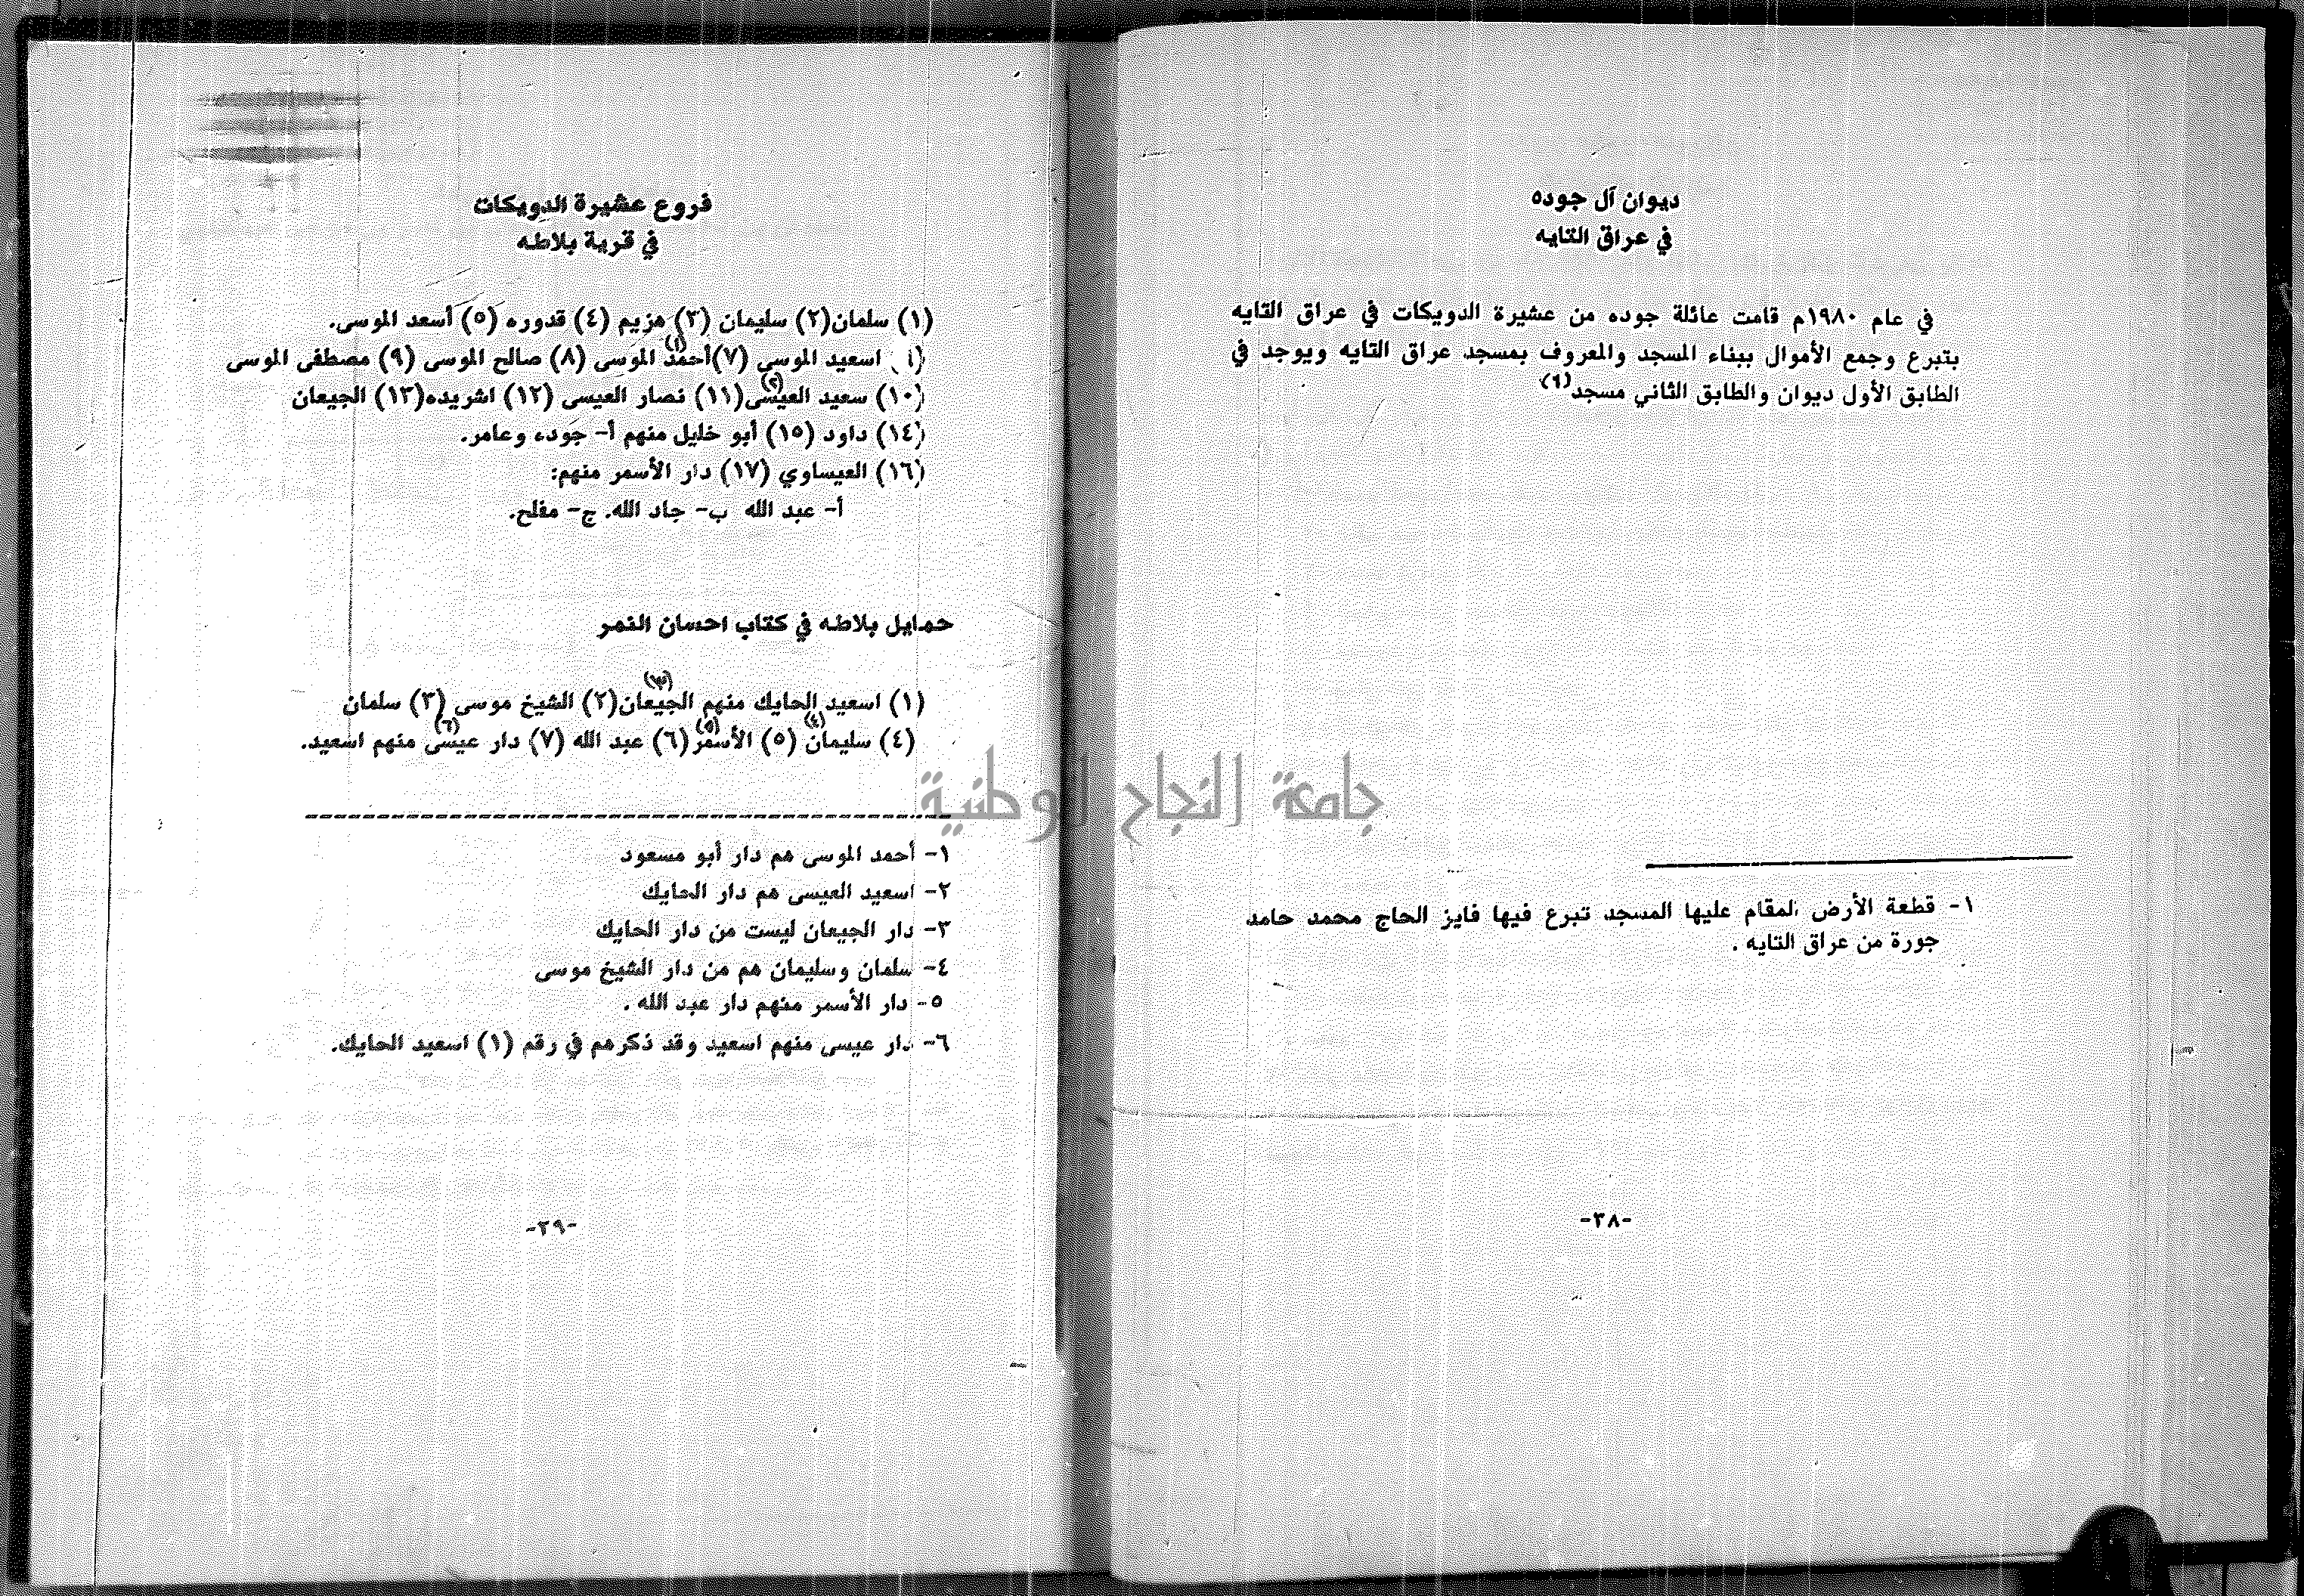 ديوان آل جوده
في عراق التايه
في عام ١٩٨٠م قامت عائلة جوده من عشيرة الدويكات في عراق التايه
بتبرع وجمع الأموال ببناء المسجد والمعروف بمسجد عراق التايه ويوجد في
الطابق الأول ديوان والطابق الثاني مسجد(١)
١- قطعة الأرض المقام عليها المسجد تبرع فيها فايز الحاج محمد حامد
جورة من عراق التايه .
-٣٨-
فروع عشيرة الدويكات
في قرية بلاطه
(١) سلمان(٢) سليمان (٣) هزيم (٤) قدوره (٥) أسعد الموسى.
اسعيد الموسى (٧)أحمد(١) الموسى (٨) صالح الموسى (٩) مصطفى الموسى
(١٠) سعيد العيسى(٢)(١١) نصار العيسى (١٢) اشريده(١٣) الجيعان
(١٤) داود (١٥) أبو خليل منهم أ- جوده وعامر.
(١٦) العيساوي (١٧) دار الأسمر منهم:
أ- عبد الله ب- جاد الله. ج- مفلح.
حمايل بلاطه في كتاب احسان النمر
(١) اسعيد الحايك منهم الجيعان(٣)(٢) الشيخ موسى (٣) سلمان
(٤) سليمان(٤) (٥) الأسمر(٥)(٦) عبد الله (٧) دار عيسى(٦) منهم اسعيد.
١- أحمد الموسى هم دار أبو مسعود
٢- اسعيد العيسى هم دار الحايك
٣- دار الجيعان ليست من دار الحايك
٤- سلمان وسليمان هم من دار الشيخ موسى
٥- دار الأسمر منهم دار عبد الله .
٦- دار عيسى منهم اسعيد وقد ذكرهم في رقم (١) اسعيد الحايك.
-٣٩-
جامعة النجاح الوطنية